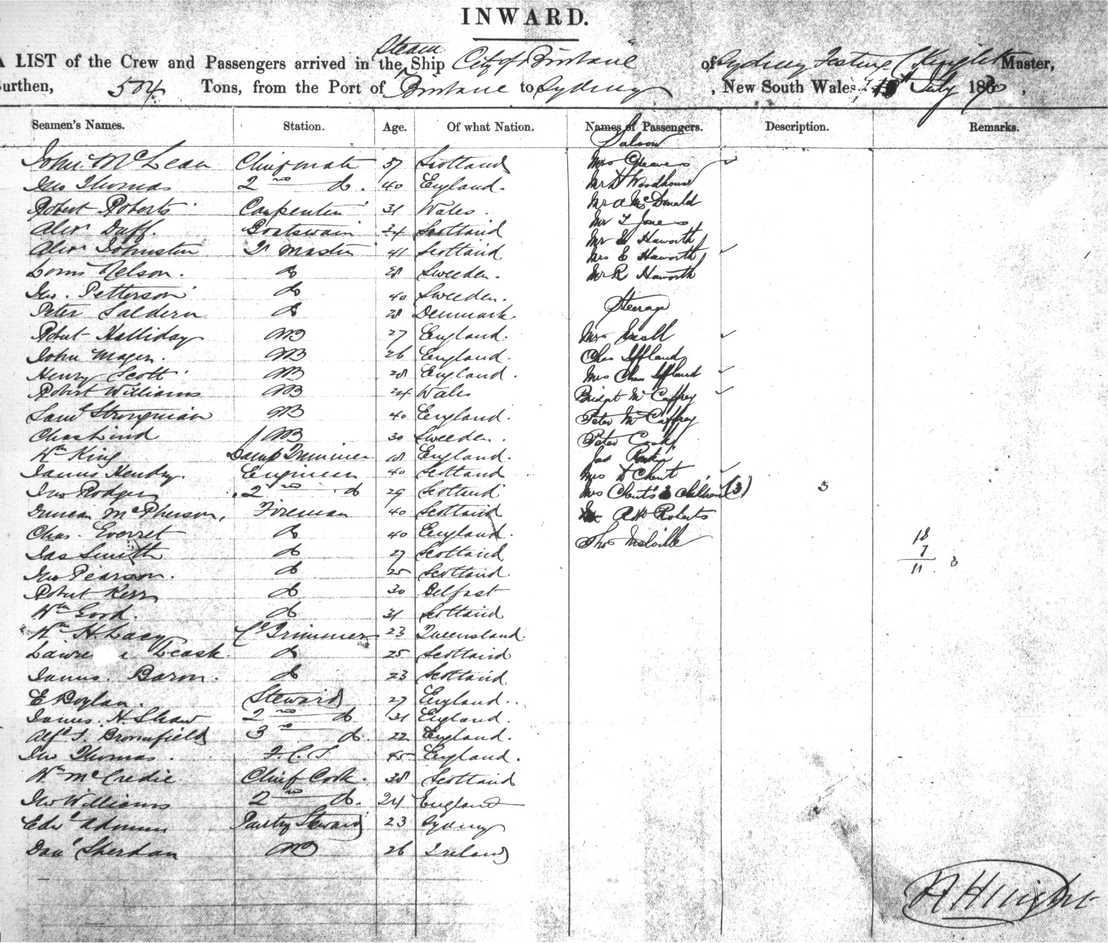 INWARD.
A LIST of the Crew and Passengers arrived in the Steam Ship City of Brisbane of Sydney Knight Master,
Burthen, 504 Tons, from the Port of Brisbane to Sydney, New South Wales July 188
Seamen's Names. Station. Age. Of what Nation. Names of Passengers. Description. Remarks.
Saloon
John McLean Chief mate 37 Scotland Mrs Greaves
Jno Thomas 2nd do. 40 England. Mr Woodhouse
Robert Roberts Carpenter 31 Wales. Mr A McDonald
Alexr Duff. Boatswain 34 Scotland Mr T Jones
Alexr Johnston Master 41 Scotland Mr Haworth
Mrs E Haworth
Nelson. do 28 Sweden. Mr R Haworth
Jno. Petterson do 40 Sweden.
Peter Saldern do 28 Denmark Steerage
Robert Halliday AB 27 England. Mrs Small
John Mager. AB 26 England. Chas Iffland
Henry Scott AB 28 England. Mrs Chas Iffland
Robert Williams AB 24 Wales Bridget McCaffrey
Saml Strongman AB 40 England. Peter McCaffrey
Chas Lind AB 30 Sweden. Peter
Wm King Lamp Trimmer 18 England. Jas
James Hendry. Engineer 40 Scotland Mrs
Jno Rodger 2nd do 29 Scotland Mrs & Children (3) 3
Duncan McPherson, Fireman 40 Scotland Roberts
Chas. Everret do 40 England. Thos Melville 18
Jas Smith do 27 Scotland 7
Jno Pearson. do 25 Scotland 11
Robert Kerr do 30 Belfast
Wm Good. do 31 Scotland
Wm H. Lacy Trimmer 23 Queensland
Leask. do 25 Scotland
James. Baron. do 23 Scotland
E Boylan Steward 27 England.
James. H. Shaw 2nd do 31 England.
Alfd J. Bromfield 3rd do. 22 England.
Jno Thomas. F.C.S 45 England.
Wm McCredie Chief Cook. 38 Scotland
Jno Williams 2nd do. 24 England
Edwd Pantry Steward 23 Sydney
Danl Sheridan AB 26 Ireland
Knight